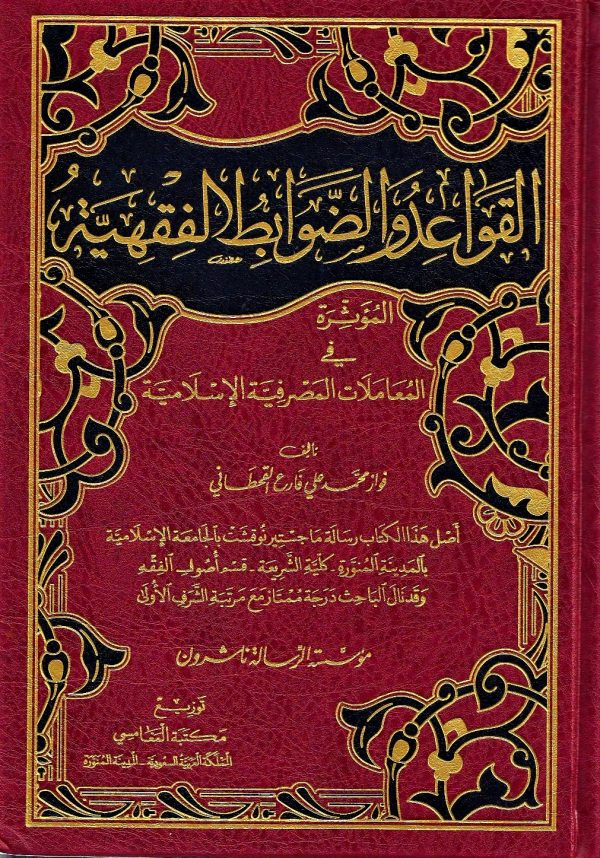 القَوَاعِدُ وَالضَّوَابِطُ الفِقْهِيَّةُ
المُؤَثِّرَة
فِي
المُعَامَلَات المَصْرفِيَّة الإِسْلَاميَّة
تأليف
فواز محمد علي فارع القحطاني
أَصْل هَذَا الكِتَاب رسَالَة مَاجسْتِير نُوقشَتْ بالجَامعَة الإسْلَاميَّة
بالمَدِينَة المُنَوَّرَة - كليَّة الشَّريعَة - قسْم أُصُول الفِقْه
وَقَد نَالَ البَاحِث دَرَجَة مُمْتَاز مَعَ مَرتَبَة الشَّرَف الأُولَى
مؤسسة الرسالة ناشرون
توزيع
مكتبة
المملكة العربية السعودية - المدينة المنورة